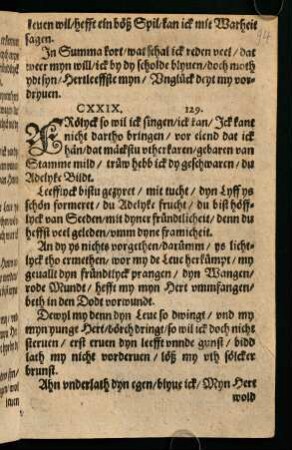 leuen wil/hefft ein böß Spil/kan ick mit Warheit
sagen.
In Summa kort/wat schal ick reden veel/dat
weer myn will/ick by dy scholde blyuen/doch moth
ydt syn/Hertleeffste myn/Vnglück deyt my vor-
dryuen.
CXXIX. 129.
Frölyck so wil ick singen/ick kan/Jck kant
nicht dartho bringen/vor elend dat ick
hän/dat mäckstu vtherkaren/gebaren van
Stamme mild/trüw hebb ick dy geschwaren/du
Adelyke Bildt.
Leefflyck bistu gezyret/mit tucht/dyn Lyff ys
schön formeret/du Adelyke frucht/du bist höff-
lyck van Seeden/mit dyner fründtlicheit/denn du
heffst veel geleden/vmm dyne framicheit.
An dy ys nichts vorgethen/darümm/ys licht-
lyck tho ermethen/wor my de Leue herkümpt/my
geuallt dyn fründtlyck prangen/dyn Wangen/
rode Mundt/hefft my myn Hert vmmfangen/
beth in den Dodt vorwundt.
Dewyl my denn dyn Leue so dwingt/vnd my
myn yunge Hert/dörch dringt/so wil ick doch nicht
steruen/erst eruen dyn leefft vnnde gunst/bidd
lath my nicht vorderuen/löß my vth sölcker
brunst.
Ahn vnderlath dyn egen/blyue ick/Myn Hert
wold